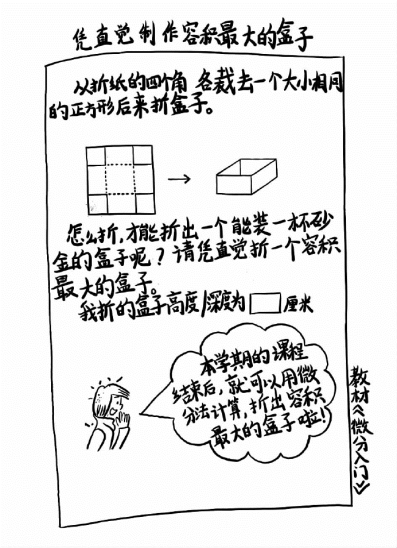 凭直觉制作容积最大的盒子
从折纸的四个角 各裁去一个大小相同
的正方形后来折盒子。
怎么折,才能折出一个能装一杯砂
金的盒子呢?请凭直觉折一个容积
最大的盒子。
我折的盒子高度/深度为 厘米
本学期的课程
结束后,就可以用微
分法计算,折出容积
最大的盒子啦!
教材《微分入门》